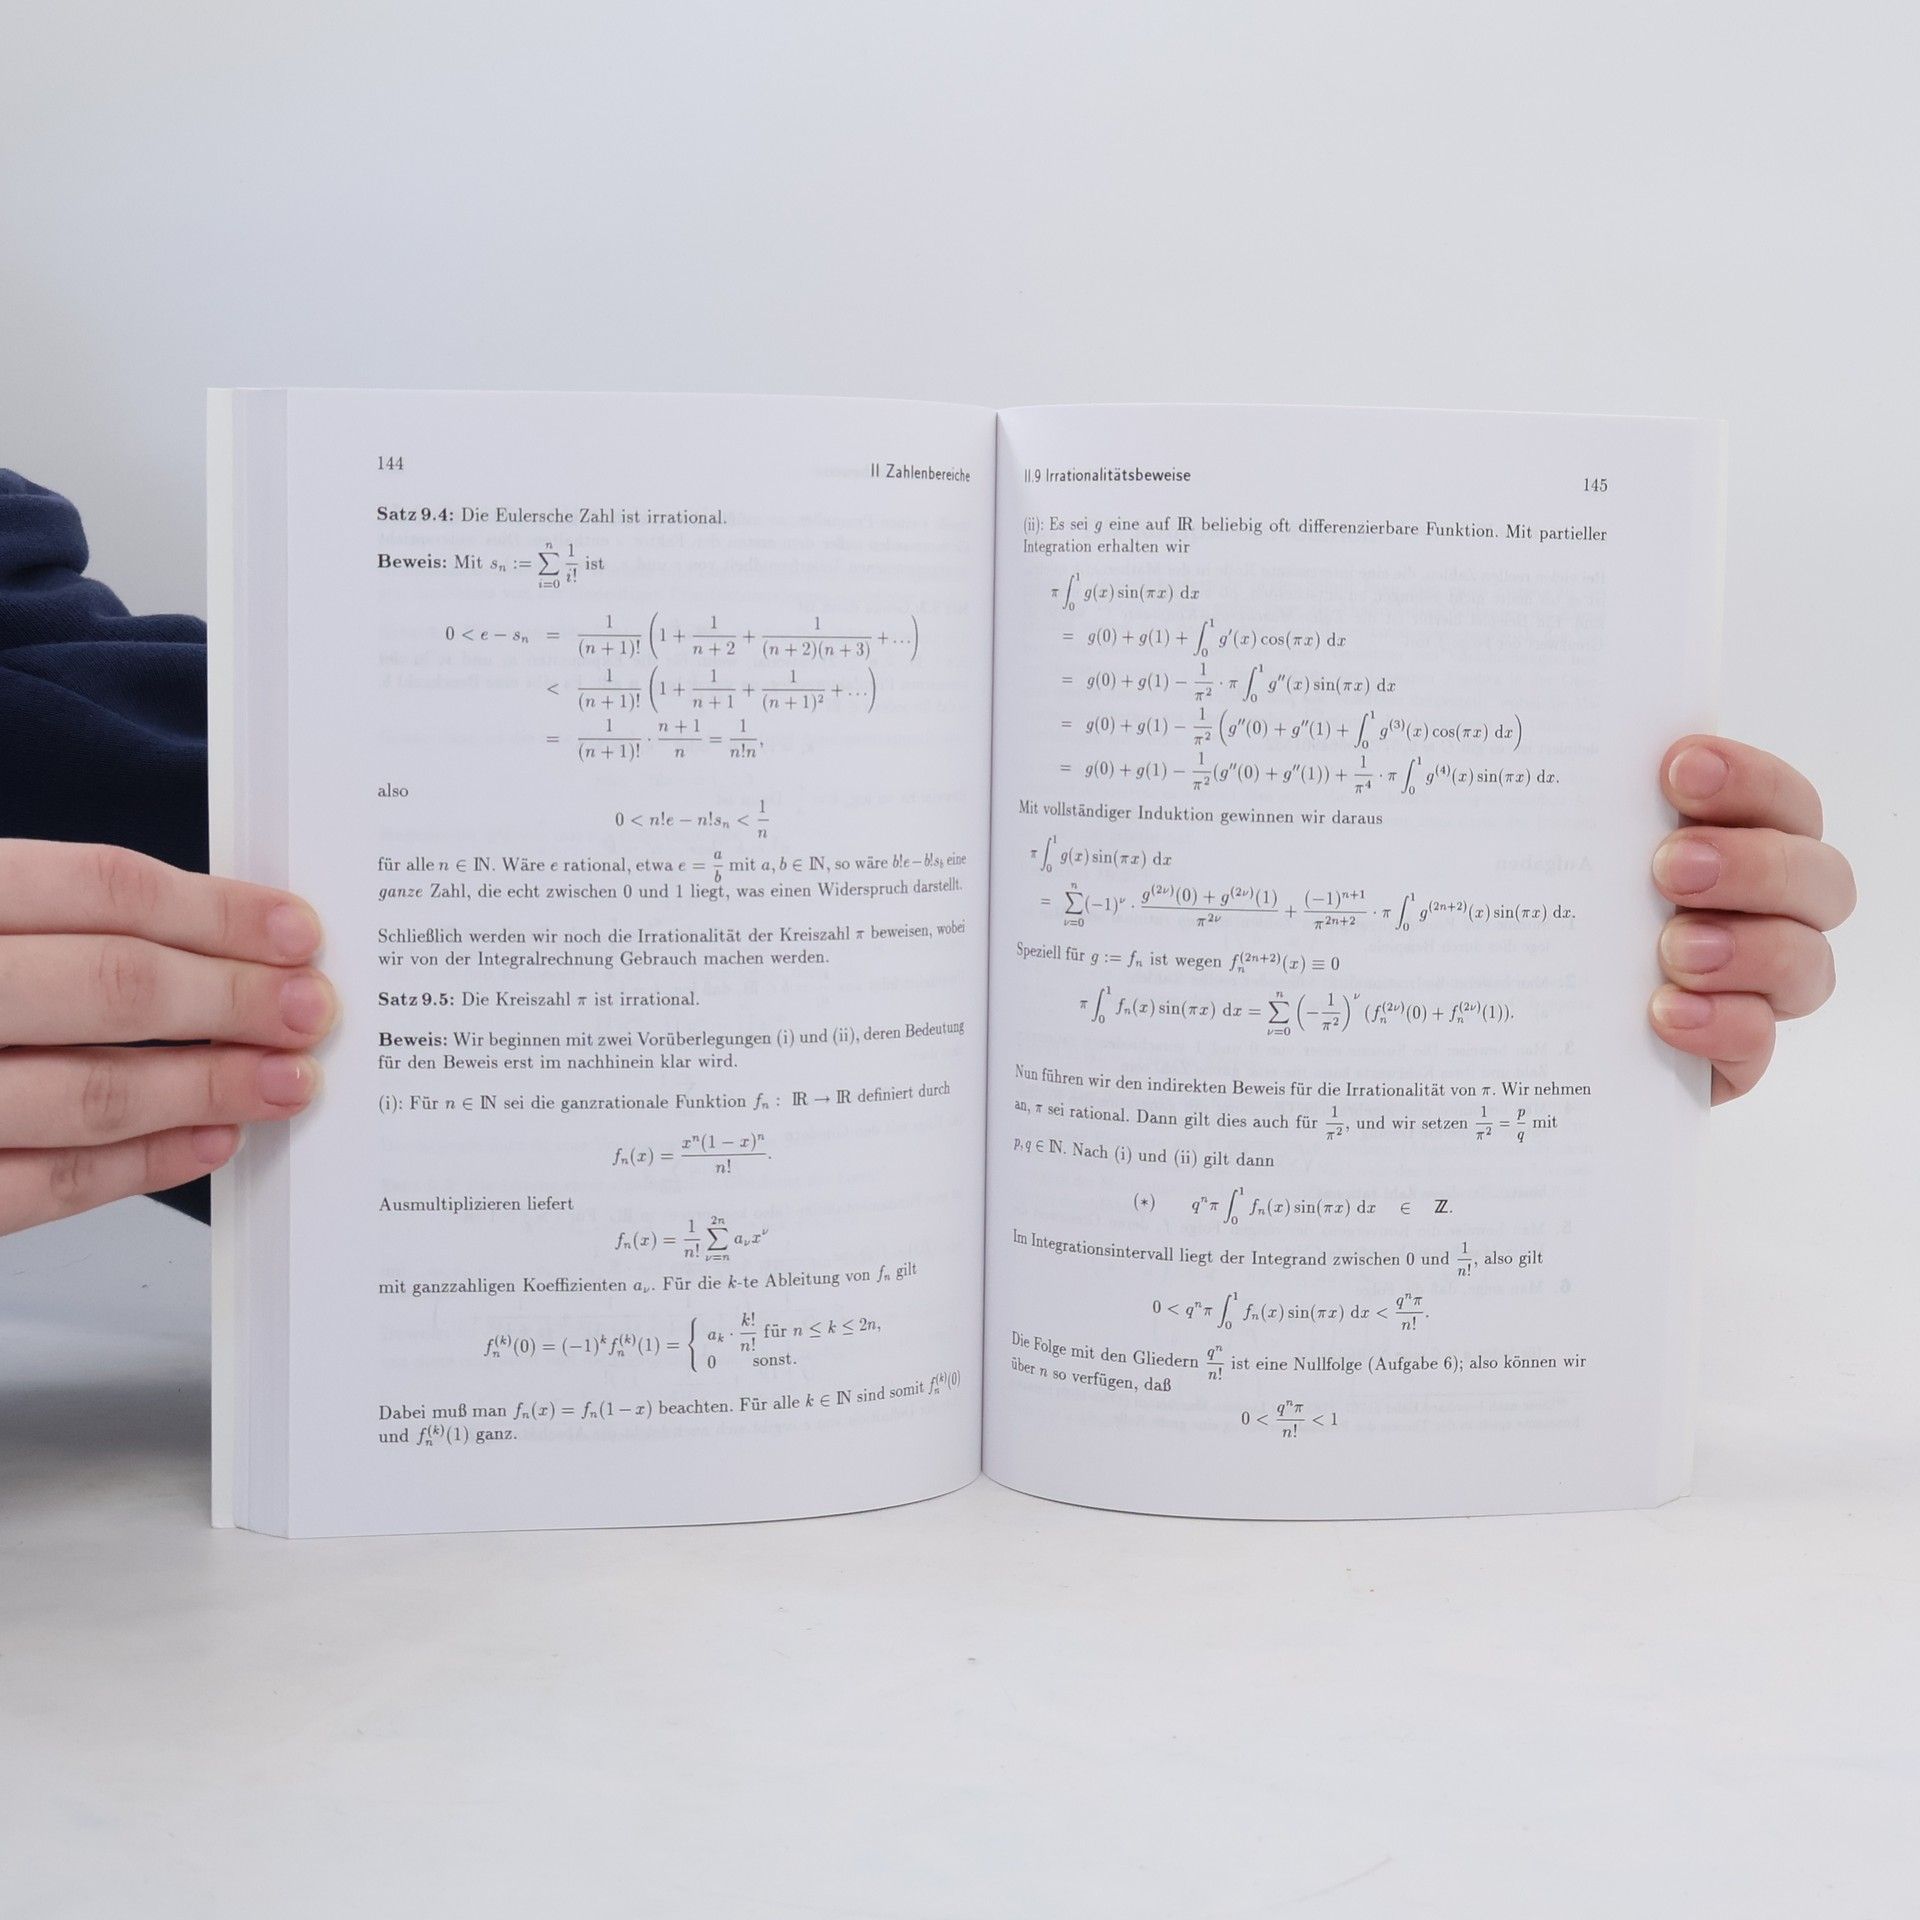 144
II Zahlenbereiche
Satz 9.4: Die Eulersche Zahl ist irrational.
Beweis: Mit sₙ := ∑_{i=0}^{n} 1/i! ist
0 < e − sₙ = 1/(n + 1)! (1 + 1/(n + 2) + 1/((n + 2)(n + 3)) + …)
< 1/(n + 1)! (1 + 1/(n + 1) + 1/(n + 1)² + …)
= 1/(n + 1)! · (n + 1)/n = 1/(n!n),
also
0 < n!e − n!sₙ < 1/n
für alle n ∈ ℕ. Wäre e rational, etwa e = a/b mit a, b ∈ ℕ, so wäre b!e − b!s_b eine
ganze Zahl, die echt zwischen 0 und 1 liegt, was einen Widerspruch darstellt.
Schließlich werden wir noch die Irrationalität der Kreiszahl π beweisen, wobei
wir von der Integralrechnung Gebrauch machen werden.
Satz 9.5: Die Kreiszahl π ist irrational.
Beweis: Wir beginnen mit zwei Vorüberlegungen (i) und (ii), deren Bedeutung
für den Beweis erst im nachhinein klar wird.
(i): Für n ∈ ℕ sei die ganzrationale Funktion fₙ : ℝ → ℝ definiert durch
fₙ(x) = xⁿ(1 − x)ⁿ/n!.
Ausmultiplizieren liefert
fₙ(x) = 1/n! ∑_{ν=n}^{2n} a_ν x^ν
mit ganzzahligen Koeffizienten a_ν. Für die k-te Ableitung von fₙ gilt
fₙ^{(k)}(0) = (−1)^k fₙ^{(k)}(1) = { a_k · k!/n! für n ≤ k ≤ 2n,
0 sonst.
Dabei muß man fₙ(x) = fₙ(1 − x) beachten. Für alle k ∈ ℕ sind somit fₙ^{(k)}(0)
und fₙ^{(k)}(1) ganz.
II.9 Irrationalitätsbeweise
145
(ii): Es sei g eine auf ℝ beliebig oft differenzierbare Funktion. Mit partieller
Integration erhalten wir
π ∫₀¹ g(x) sin(πx) dx
= g(0) + g(1) + ∫₀¹ g′(x) cos(πx) dx
= g(0) + g(1) − 1/π² · π ∫₀¹ g″(x) sin(πx) dx
= g(0) + g(1) − 1/π² (g″(0) + g″(1) + ∫₀¹ g^{(3)}(x) cos(πx) dx)
= g(0) + g(1) − 1/π² (g″(0) + g″(1)) + 1/π⁴ · π ∫₀¹ g^{(4)}(x) sin(πx) dx.
Mit vollständiger Induktion gewinnen wir daraus
π ∫₀¹ g(x) sin(πx) dx
= ∑_{ν=0}^{n} (−1)^ν · (g^{(2ν)}(0) + g^{(2ν)}(1))/π^{2ν} + (−1)^{n+1}/π^{2n+2} · π ∫₀¹ g^{(2n+2)}(x) sin(πx) dx.
Speziell für g := fₙ ist wegen fₙ^{(2n+2)}(x) ≡ 0
π ∫₀¹ fₙ(x) sin(πx) dx = ∑_{ν=0}^{n} (−1/π²)^ν (fₙ^{(2ν)}(0) + fₙ^{(2ν)}(1)).
Nun führen wir den indirekten Beweis für die Irrationalität von π. Wir nehmen
an, π sei rational. Dann gilt dies auch für 1/π², und wir setzen 1/π² = p/q mit
p, q ∈ ℕ. Nach (i) und (ii) gilt dann
(∗) qⁿπ ∫₀¹ fₙ(x) sin(πx) dx ∈ ℤ.
Im Integrationsintervall liegt der Integrand zwischen 0 und 1/n!, also gilt
0 < qⁿπ ∫₀¹ fₙ(x) sin(πx) dx < qⁿπ/n!.
Die Folge mit den Gliedern qⁿ/n! ist eine Nullfolge (Aufgabe 6); also können wir
über n so verfügen, daß
0 < qⁿπ/n! < 1